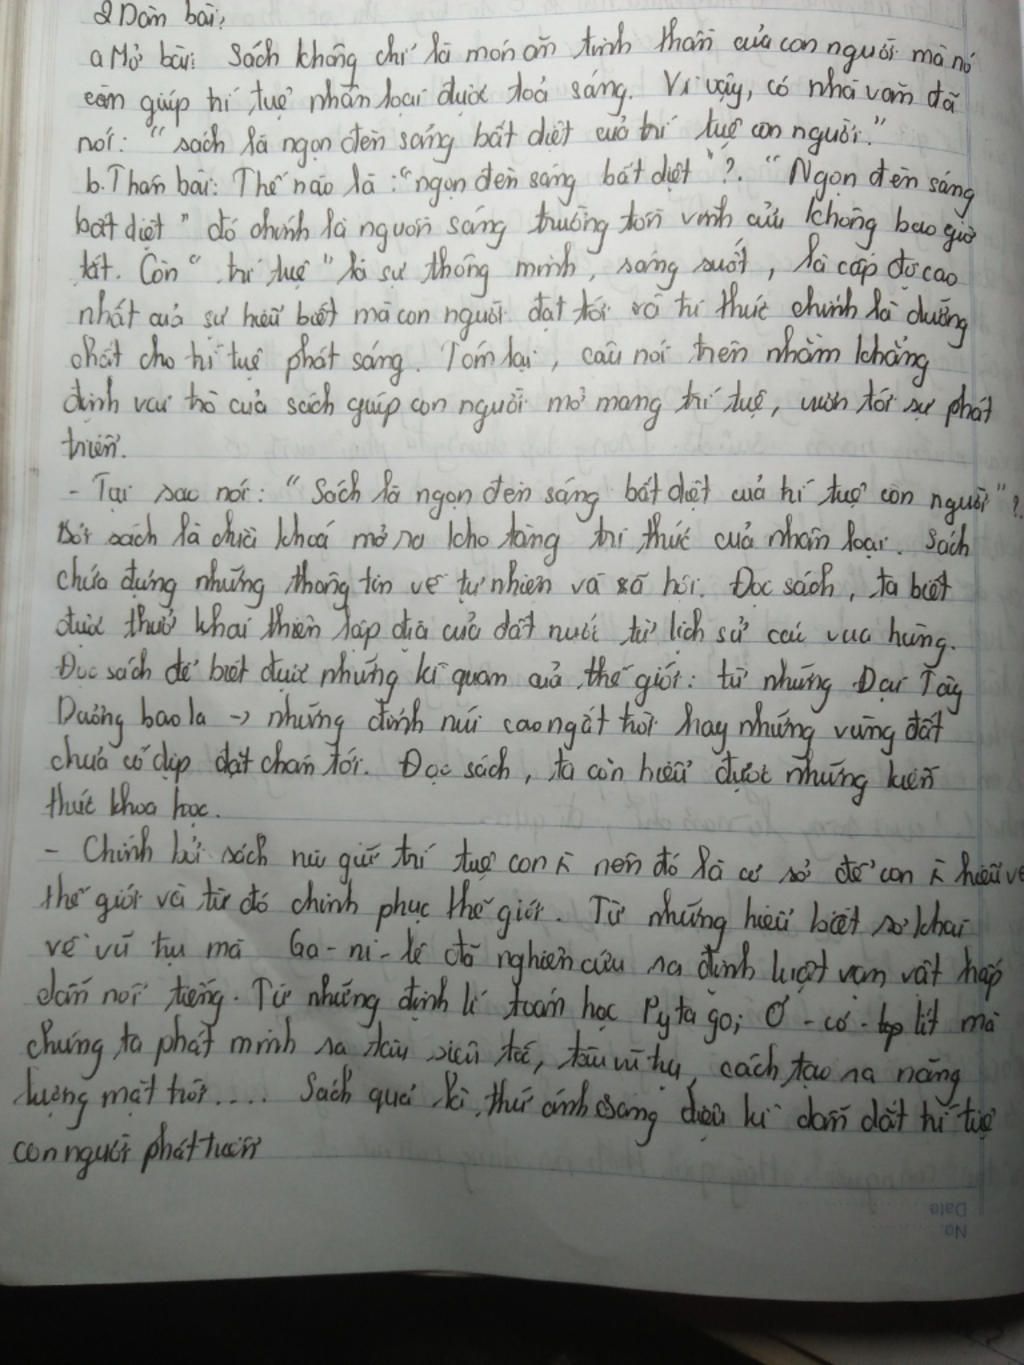 2 Dàn bài:
a Mở bài: Sách không chỉ là món ăn tinh thần của con người mà nó
còn giúp trí tuệ nhân loại được toả sáng. Vì vậy, có nhà văn đã
nói: "sách là ngọn đèn sáng bất diệt của trí tuệ con người."
b. Thân bài: Thế nào là: "ngọn đèn sáng bất diệt"?. "Ngọn đèn sáng
bất diệt" đó chính là nguồn sáng trường tồn vĩnh cửu không bao giờ
tắt. Còn "trí tuệ" là sự thông minh, sáng suốt, là cấp độ cao
nhất của sự hiểu biết mà con người đạt tới và tri thức chính là dưỡng
chất cho trí tuệ phát sáng. Tóm lại, câu nói trên nhằm khẳng
định vai trò của sách giúp con người mở mang trí tuệ, vươn tới sự phát
triển.
- Tại sao nói: "Sách là ngọn đèn sáng bất diệt của trí tuệ con người"?.
Bởi sách là chìa khoá mở ra kho tàng tri thức của nhân loại. Sách
chứa đựng những thông tin về tự nhiên và xã hội. Đọc sách, ta biết
được thuở khai thiên lập địa của đất nước từ lịch sử các vua hùng.
Đọc sách để biết được những kì quan của thế giới: từ những Đại Tây
Dương bao la -> những đỉnh núi cao ngất trời hay những vùng đất
chưa có dịp đặt chân tới. Đọc sách, ta còn hiểu được những kiến
thức khoa học.
- Chính bởi sách níu giữ trí tuệ con  nên đó là cơ sở để con  hiểu về
thế giới và từ đó chinh phục thế giới. Từ những hiểu biết sơ khai
về vũ trụ mà Ga-ni-lê đã nghiên cứu ra định luật vạn vật hấp
dẫn nổi tiếng. Từ những định lí toán học Pytago; Ơ-cơ-lit mà
chúng ta phát minh ra tàu siêu tốc, tàu vũ trụ, cách tạo ra năng
lượng mặt trời.... Sách quả là thứ ánh sáng diệu kì dẫn dắt trí tuệ
con người phát triển